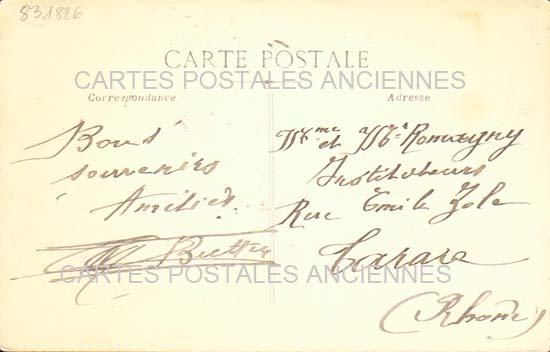 831826
CARTE POSTALE
CARTES POSTALES ANCIENNES
Correspondance
Adresse
Bons
souvenirs
Amitiés
Mme et Mr
Instituteurs
Rue Emile Zola
Tarare
(Rhône)
CARTES POSTALES ANCIENNES